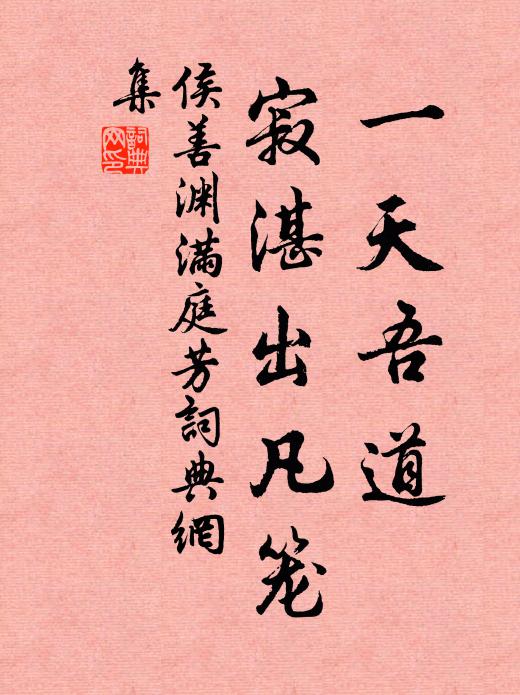 一天吾道
寂湛出凡笼
侯善渊满庭芳詞典網
集
詞典网印